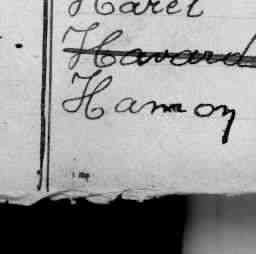 Harel
Havard
Hamon